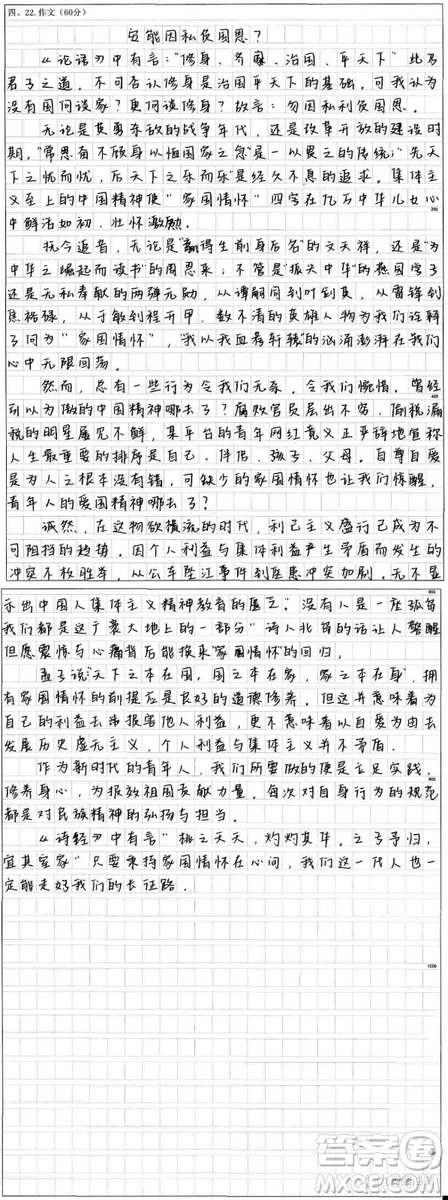 四、22.作文(60分)
安能因私负国恩？
《论语》中有言："修身、齐家、治国、平天下"此乃
君子之道，不可否认修身是治国平天下的基础，可我认为
没有国何谈家？更何谈修身？故言：勿因私利负国恩。
无论是英勇奋敌的战争年代，还是改革开放的建设时
期，"常思奋不顾身以殉国家之急"是一以贯之的传统；"先天
下之忧而忧，后天下之乐而乐"是经久不息的追求。集体主
义至上的中国精神使"家国情怀"四字在亿万中华儿女心
中鲜活如初，壮怀激励。
抚今追昔，无论是"赢得生前身后名"的文天祥，还是"为
中华之崛起而读书"的周恩来；不管是"振兴中华"的热国学子
还是无私奉献的两弹元勋，从谭嗣同到叶剑英，从雷锋到
焦裕禄，从于敏到程开甲，数不清的英雄人物为我们诠释
了何为"家国情怀"，"我以我血荐轩辕"的汹涌澎湃在我们
心中无限回荡。
然而，总有一些行为令我们无奈，令我们惋惜。曾经
引以为傲的中国精神哪去了？腐败官员层出不穷，偷税漏
税的明星屡见不鲜，某平台的青年网红竟义正严辞地宣称
人生最重要的排序是自己、伴侣、孩子、父母。自尊自爱
是为人之根本没有错，可缺少的家国情怀也让我们惊醒，
青年人的爱国精神哪去了？
诚然，在这物欲横流的时代，利己主义盛行已成为不
可阻挡的趋势，因个人利益与集体利益产生矛盾而发生的
冲突不枚胜举，从公车坠江事件到医患冲突加剧，无不显
示出中国人集体主义精神教育的匮乏。"没有人是一座孤岛
我们都是这广袤大地上的一部分"诗人北岛的话让人警醒
但愿震惊与心痛背后能换来"家国情怀"的回归。
孟子说"天下之本在国，国之本在家，家之本在身"，拥
有家国情怀的前提应是良好的道德修养。但这并意味着为
自己的利益去涕报害他人利益，更不意味着以自爱为由去
发展历史虚无主义，个人利益与集体主义并不矛盾。
作为新时代的青年人，我们所要做的便是立足实践，
修养身心，为报效祖国贡献力量，每次对自身行为的规范
都是对民族精神的弘扬与担当。
《诗经》中有言"桃之夭夭，灼灼其华。之子于归，
宜其室家"只要秉持家国情怀在心间，我们这一代人也一
定能走好我们的长征路。
答案圈
MXQE.COM